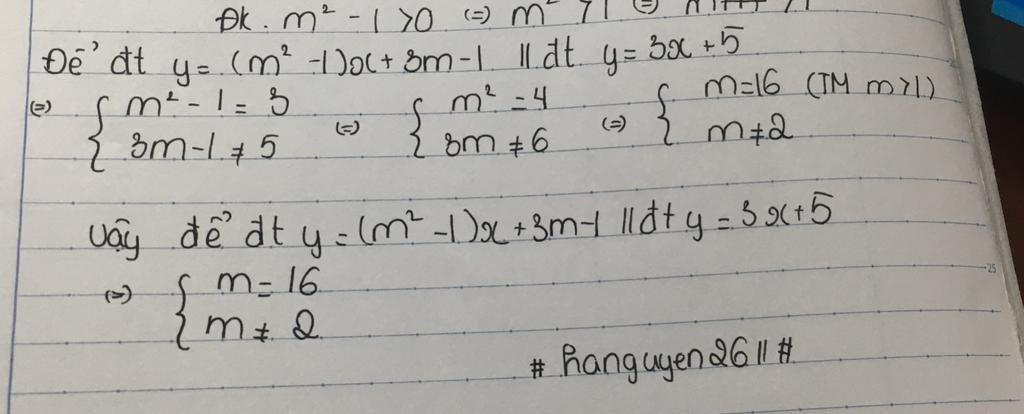 Đk. m² - 1 > 0 (=) m² > 1 (=)
Để đt y = (m² - 1)x + 3m - 1 // đt y = 3x + 5
(=) { m² - 1 = 3 (=) { m² = 4 (=) { m = 16 (TM m > 1)
3m - 1 ≠ 5 3m ≠ 6 m ≠ 2
Vậy để đt y = (m² - 1)x + 3m - 1 // đt y = 3x + 5
(=) { m = 16
m ≠ 2
25
# hanguyen2611 #